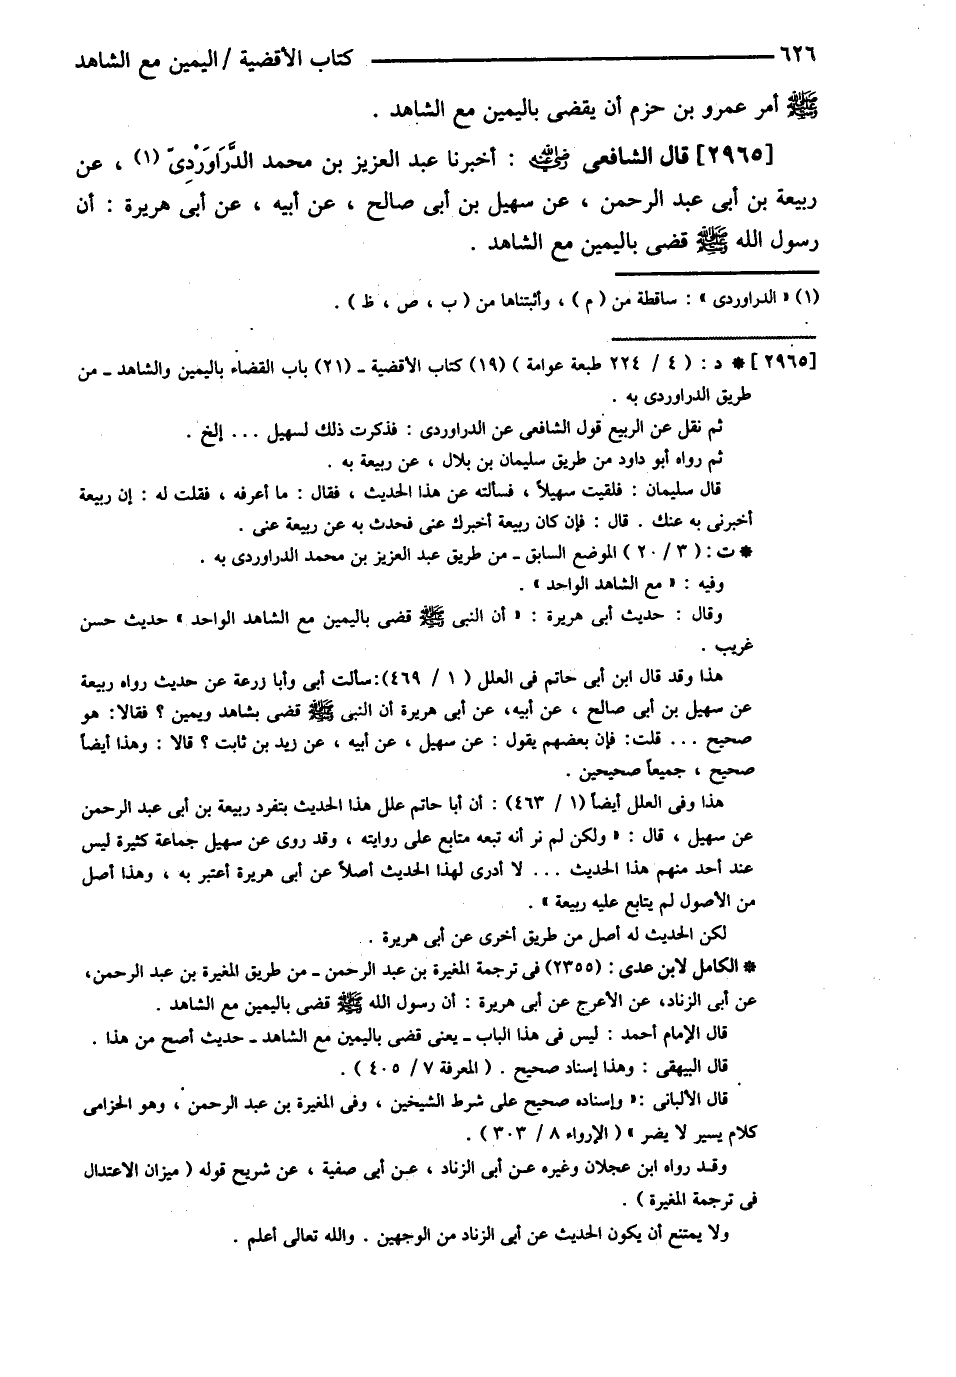 ٦٢٦ ــــــــــــ كتاب الأقضية / اليمين مع الشاهد
ﷺ أمر عمرو بن حزم أن يقضى باليمين مع الشاهد .
[٢٩٦٥] قال الشافعى رضي الله عنه : أخبرنا عبد العزيز بن محمد الدَّرَاوَرْدِىّ (١) ، عن
ربيعة بن أبى عبد الرحمن ، عن سهيل بن أبى صالح ، عن أبيه ، عن أبى هريرة : أن
رسول الله ﷺ قضى باليمين مع الشاهد .
(١) « الدراوردى » : ساقطة من ( م ) ، وأثبتناها من ( ب ، ص ، ظ ) .
[٢٩٦٥] * د : ( ٤ / ٢٢٤ طبعة عوامة ) (١٩) كتاب الأقضية ـ (٢١) باب القضاء باليمين والشاهد ـ من
طريق الدراوردى به .
ثم نقل عن الربيع قول الشافعى عن الدراوردى : فذكرت ذلك لسهيل ... إلخ .
ثم رواه أبو داود من طريق سليمان بن بلال ، عن ربيعة به .
قال سليمان : فلقيت سهيلاً ، فسألته عن هذا الحديث ، فقال : ما أعرفه ، فقلت له : إن ربيعة
أخبرنى به عنك . قال : فإن كان ربيعة أخبرك عنى فحدث به عن ربيعة عنى .
* ت : ( ٣ / ٢٠ ) الموضع السابق ـ من طريق عبد العزيز بن محمد الدراوردى به .
وفيه : « مع الشاهد الواحد » .
وقال : حديث أبى هريرة : « أن النبى ﷺ قضى باليمين مع الشاهد الواحد » حديث حسن
غريب .
هذا وقد قال ابن أبى حاتم فى العلل ( ١ / ٤٦٩ ):سألت أبى وأبا زرعة عن حديث رواه ربيعة
عن سهيل بن أبى صالح ، عن أبيه، عن أبى هريرة أن النبى ﷺ قضى بشاهد ويمين ؟ فقالا: هو
صحيح ... قلت: فإن بعضهم يقول : عن سهيل ، عن أبيه ، عن زيد بن ثابت ؟ قالا : وهذا أيضاً
صحيح ، جميعاً صحيحين .
هذا وفى العلل أيضاً (١ / ٤٦٣) : أن أبا حاتم علل هذا الحديث بتفرد ربيعة بن أبى عبد الرحمن
عن سهيل ، قال : « ولكن لم نر أنه تبعه متابع على روايته ، وقد روى عن سهيل جماعة كثيرة ليس
عند أحد منهم هذا الحديث ... لا أدرى لهذا الحديث أصلاً عن أبى هريرة أعتبر به ، وهذا أصل
من الأصول لم يتابع عليه ربيعة » .
لكن الحديث له أصل من طريق أخرى عن أبى هريرة .
* الكامل لابن عدى : (٢٣٥٥) فى ترجمة المغيرة بن عبد الرحمن ـ من طريق المغيرة بن عبد الرحمن،
عن أبى الزناد، عن الأعرج عن أبى هريرة : أن رسول الله ﷺ قضى باليمين مع الشاهد .
قال الإمام أحمد : ليس فى هذا الباب ـ يعنى قضى باليمين مع الشاهد ـ حديث أصح من هذا .
قال البيهقى : وهذا إسناد صحيح . ( المعرفة ٧ / ٤٠٥ ) .
قال الألبانى :« وإسناده صحيح على شرط الشيخين ، وفى المغيرة بن عبد الرحمن ، وهو الحزامى
كلام يسير لا يضر » ( الإرواء ٨ / ٣٠٣ ) .
وقد رواه ابن عجلان وغيره عن أبى الزناد ، عن أبى صفية ، عن شريح قوله ( ميزان الاعتدال
فى ترجمة المغيرة ) .
ولا يمتنع أن يكون الحديث عن أبى الزناد من الوجهين . والله تعالى أعلم .